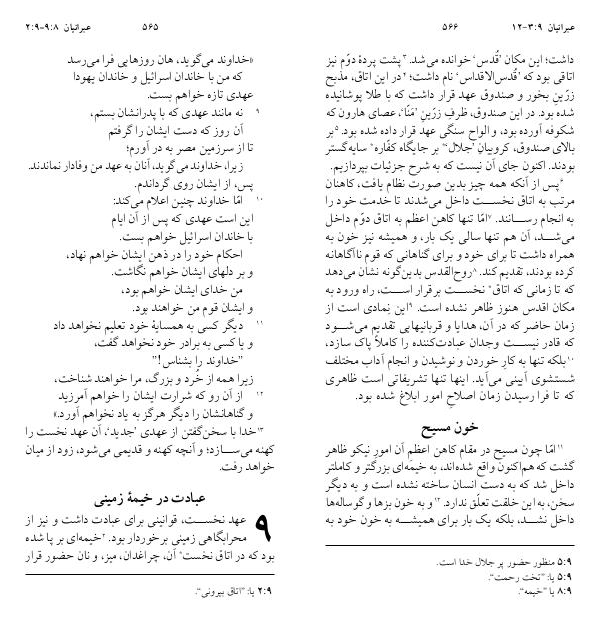 عبرانیان ۸:‏۹-۹:‏۲
۵۶۵
«خداوند می‌گوید، هان روزهایی فرا می‌رسد
که من با خاندان اسرائیل و خاندان یهودا
عهدی تازه خواهم بست.
۹ نه مانند عهدی که با پدرانشان بستم،
آن روز که دست ایشان را گرفتم
تا از سرزمین مصر به در آورم؛
زیرا، خداوند می‌گوید، آنان به عهد من وفادار نماندند.
پس، از ایشان روی گرداندم.
۱۰ امّا خداوند چنین اعلام می‌کند:
این است عهدی که پس از آن ایام
با خاندان اسرائیل خواهم بست.
احکام خود را در ذهن ایشان خواهم نهاد،
و بر دلهای ایشان خواهم نگاشت.
من خدای ایشان خواهم بود،
و ایشان قوم من خواهند بود.
۱۱ دیگر کسی به همسایهٔ خود تعلیم نخواهد داد
و یا کسی به برادر خود نخواهد گفت،
”خداوند را بشناس!“
زیرا همه از خُرد و بزرگ، مرا خواهند شناخت،
۱۲ از آن رو که شرارت ایشان را خواهم آمرزید
و گناهانشان را دیگر هرگز به یاد نخواهم آورد.»
۱۳خدا با سخن‌گفتن از عهدی ’جدید‘، آن عهد نخست را
کهنه می‌سازد؛ و آنچه کهنه و قدیمی می‌شود، زود از میان
خواهد رفت.
عبادت در خیمهٔ زمینی
۹ عهد نخست، قوانینی برای عبادت داشت و نیز از
محرابگاهی زمینی برخوردار بود. ۲خیمه‌ای بر پا شده
بود که در اتاق نخست* آن، چراغدان، میز، و نان حضور قرار
۹:‏۲ یا: ”اتاق بیرونی“.
عبرانیان ۹:‏۳-۱۲
۵۶۶
داشت؛ این مکان ’قُدس‘ خوانده می‌شد. ۳پشت پردهٔ دوّم نیز
اتاقی بود که ’قُدس‌الاقداس‘ نام داشت؛ ۴در این اتاق، مذبح
زرّینِ بخور و صندوق عهد قرار داشت که با طلا پوشانیده
شده بود. در این صندوق، ظرفِ زرّینِ ’مَنّا‘، عصای هارون که
شکوفه آورده بود، و الواح سنگی عهد قرار داده شده بود. ۵بر
بالای صندوق، کروبیانِ ’جلال‘* بر جایگاه کفّاره* سایه‌گستر
بودند. اکنون جای آن نیست که به شرح جزئیات بپردازیم.
۶پس از آنکه همه چیز بدین صورت نظام یافت، کاهنان
مرتب به اتاق نخست داخل می‌شدند تا خدمت خود را
به انجام رسانند. ۷امّا تنها کاهن اعظم به اتاق دوّم داخل
می‌شد، آن هم تنها سالی یک بار، و همیشه نیز خون به
همراه داشت تا برای خود و برای گناهانی که قوم ناآگاهانه
کرده بودند، تقدیم کند. ۸روح‌القدس بدین‌گونه نشان می‌دهد
که تا زمانی که اتاق* نخست برقرار است، راه ورود به
مکان اقدس هنوز ظاهر نشده است. ۹این نِمادی است از
زمان حاضر که در آن، هدایا و قربانیهایی تقدیم می‌شود
که قادر نیست وجدان عبادت‌کننده را کاملاً پاک سازد،
۱۰بلکه تنها به کار خوردن و نوشیدن و انجام آداب مختلف
شستشوی آیینی می‌آید. اینها تنها تشریفاتی است ظاهری
که تا فرا رسیدن زمان اصلاح امور ابلاغ شده بود.
خون مسیح
۱۱امّا چون مسیح در مقام کاهن اعظمِ آن امورِ نیکو ظاهر
گشت که هم‌اکنون واقع شده‌اند، به خیمه‌ای بزرگتر و کاملتر
داخل شد که به دست انسان ساخته نشده است و به دیگر
سخن، به این خلقت تعلّق ندارد. ۱۲و به خون بزها و گوساله‌ها
داخل نشد، بلکه یک بار برای همیشه به خون خود به
۹:‏۵ منظور حضورِ پر جلال خدا است.
۹:‏۵ یا: ”تخت رحمت“.
۹:‏۸ یا: ”خیمه“.